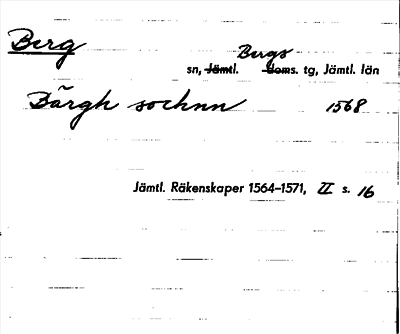 Berg
Bergs
sn, Jämtl. doms. tg, Jämtl. län
Bärgh sochnn 1568
Jämtl. Räkenskaper 1564-1571, II s. 16